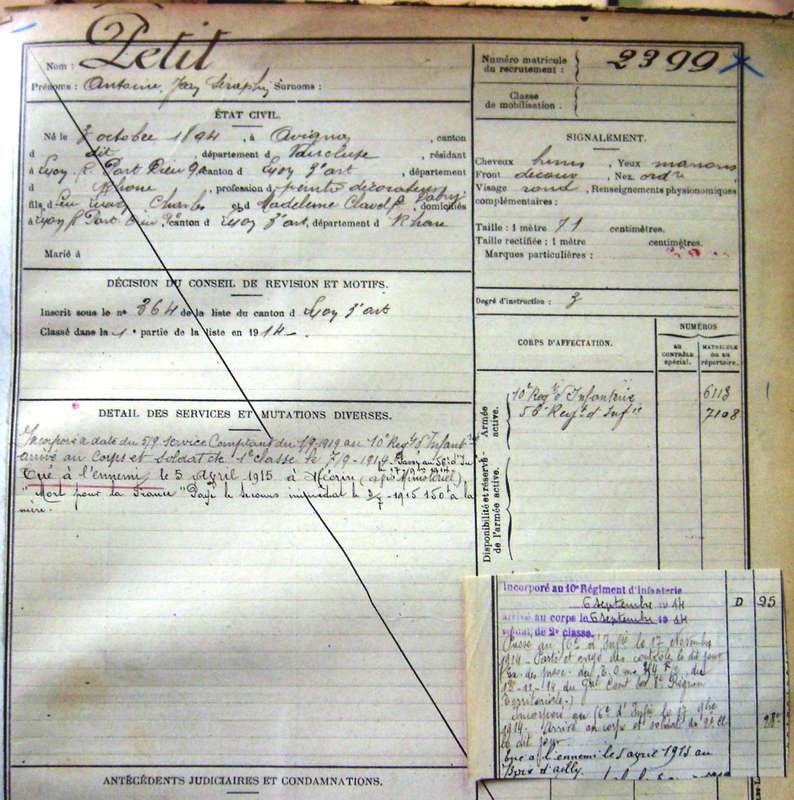 Nom : Petit
Prénoms : Antoine, Jean Séraphin Surnoms :
Numéro matricule du recrutement : 2399
Classe de mobilisation :
ÉTAT CIVIL.
Né le 3 octobre 1894, à Avignon, canton
d dit, département d Vaucluse, résidant
à Lyon R. Part Dieu 90, canton d Lyon 3e art, département
d Rhône, profession d peintre décorateur
fils d feu Charles et d Madeleine, domiciliés
à Lyon R. Part Dieu, canton d Lyon 3e art, département d Rhône
Marié à
SIGNALEMENT.
Cheveux bruns, Yeux marrons
Front découv, Nez ordre
Visage rond, Renseignements physionomiques
complémentaires :
Taille : 1 mètre 71 centimètres.
Taille rectifiée : 1 mètre centimètres.
Marques particulières :
DÉCISION DU CONSEIL DE REVISION ET MOTIFS.
Inscrit sous le n° 364 de la liste du canton d Lyon 3e art
Classé dans la 1e partie de la liste en 1914
Degré d'instruction : 3
CORPS D'AFFECTATION.
NUMÉROS
AU CONTRÔLE spécial.
MATRICULE OU AU répertoire.
Armée active.
10e Regt d'Infanterie 6113
56e Regt d'Inf 7108
Disponibilité et réserve de l'armée active.
DETAIL DES SERVICES ET MUTATIONS DIVERSES.
Incorporé à dater du service comptant du au 10e Regt d'Infant
arrivé au Corps et soldat de classe le 7-9-1914. Passé au 56e d'Inf
le 17 9bre 1914
Tué à l'ennemi le 5 Avril 1915 à (avis Ministériel)
"Mort pour la France" Payé le secours immédiat le 1915 150f à la
mère.
Incorporé au 10e Régiment d'infanterie
6 septembre 1914 D 95
arrivé au corps le 6 septembre 1914
soldat de 2e classe.
Passé au 56e d'Infie le 17 Novembre
1914 - Porté et rayé des contrôles le dit jour
du
12-11-14 du Gal Cont la 8e Région
Territoriale.)
Incorporé au 56e d'Infie le 17 9bre
1914. Arrivé au corps et soldat de 2e cl.
le dit jour
tué à l'ennemi le 5 avril 1915 au
Bois d'Ailly.
ANTÉCÉDENTS JUDICIAIRES ET CONDAMNATIONS.